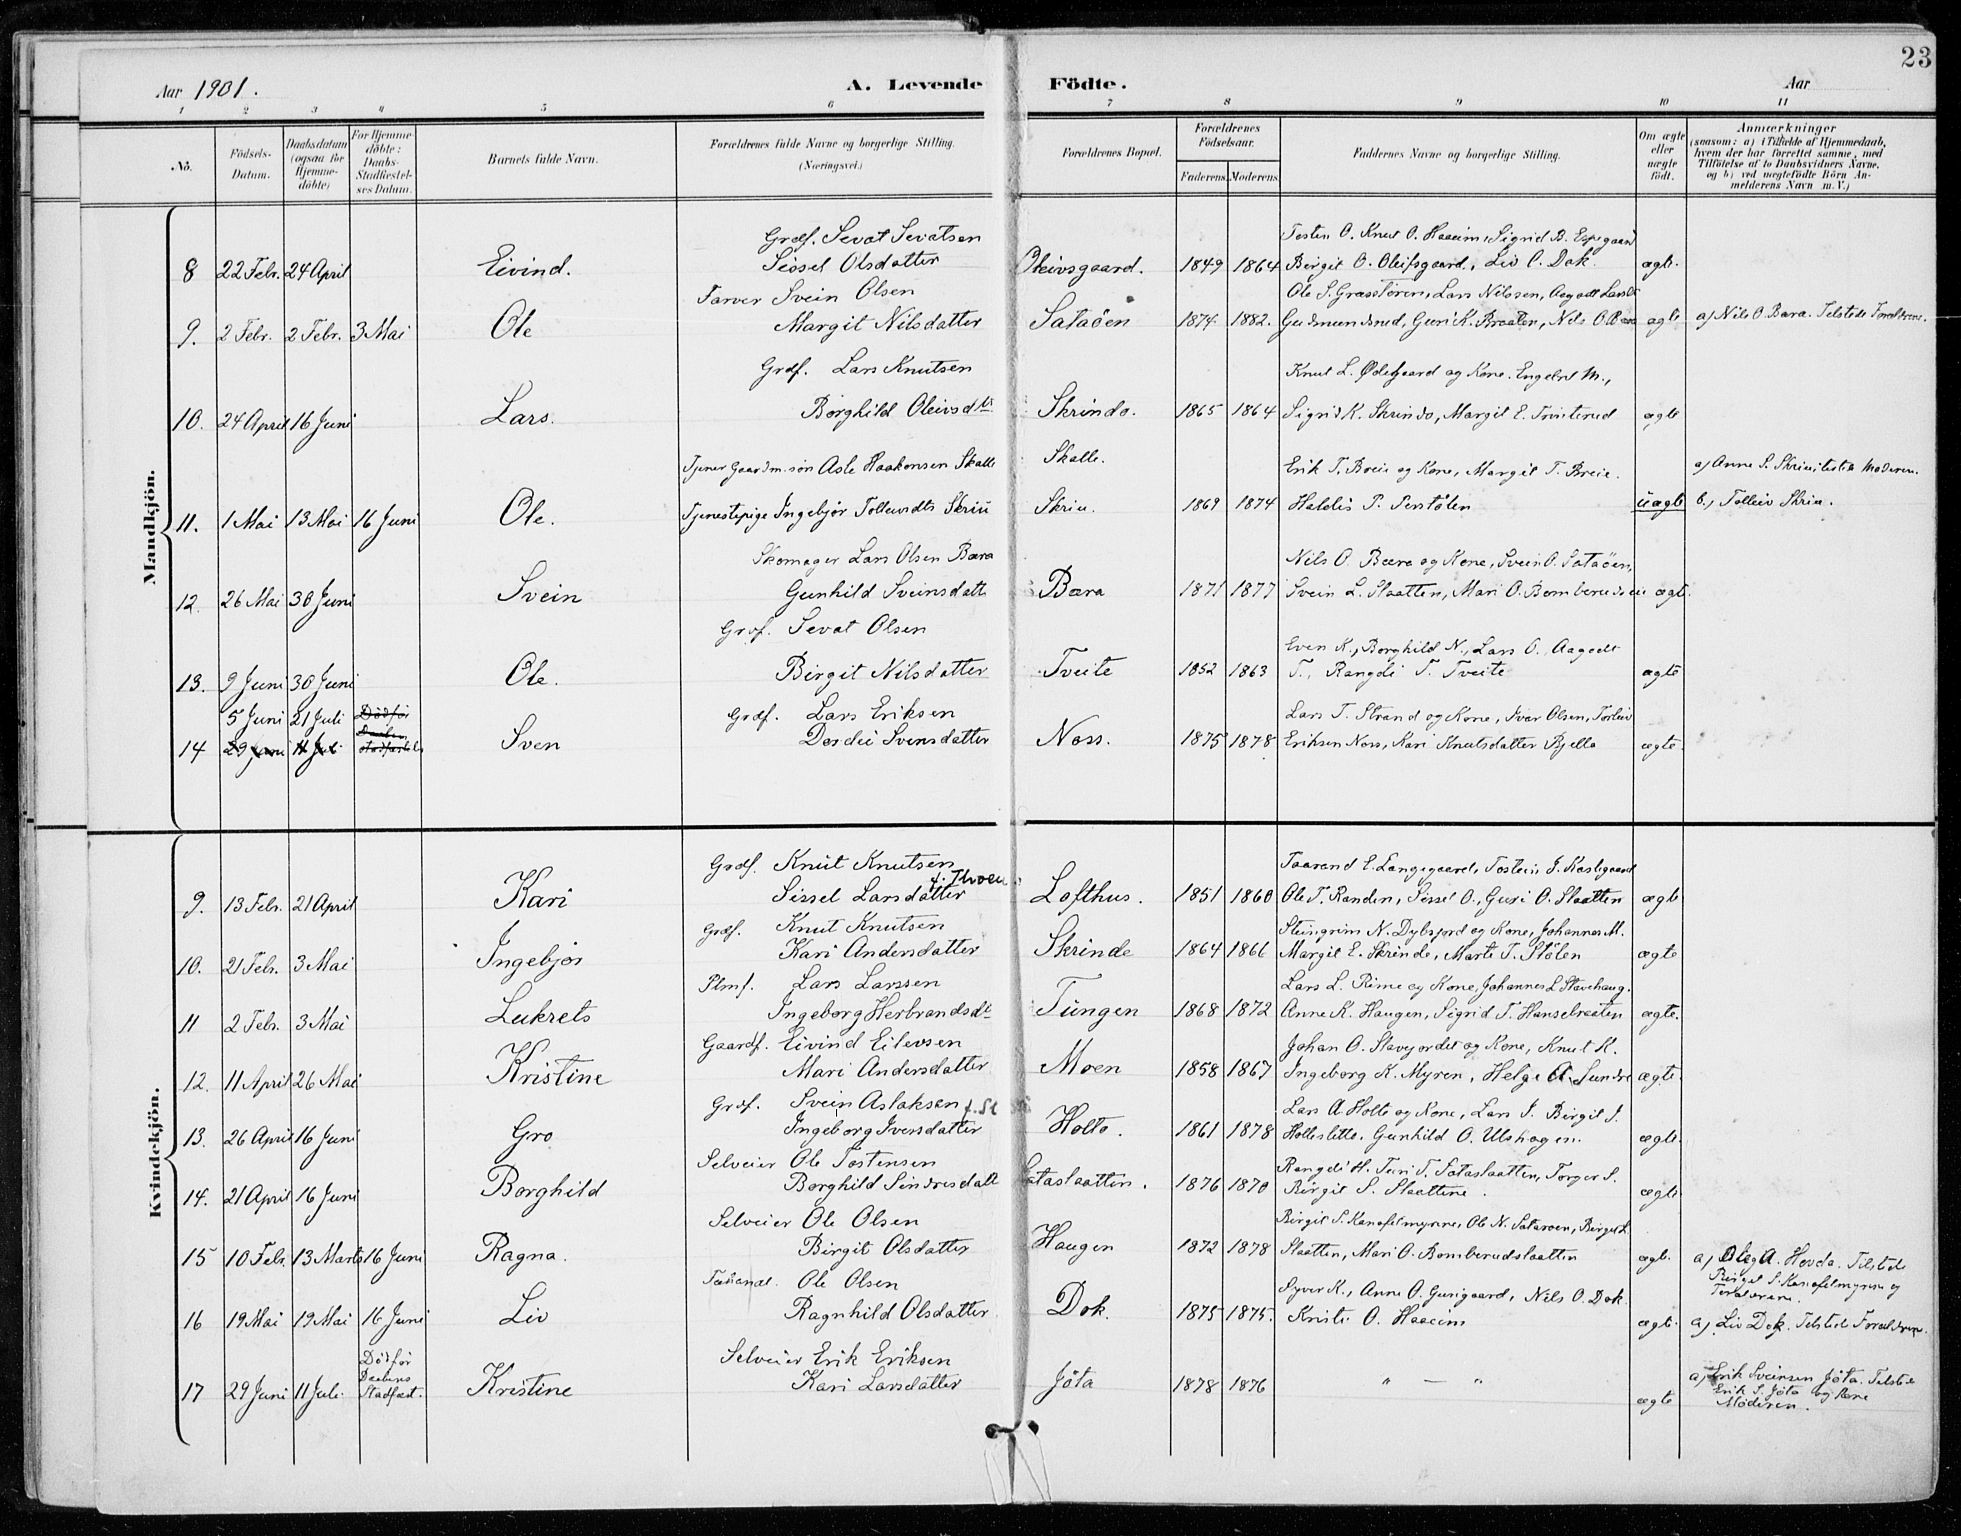 23
Aar 1901. A. Levende Födte. Aar
1 2 3 4 5 6 7 8 9 10 11
No. Födsels-Datum. Daabsdatum (ogsaa for Hjemme-döbte) For Hjemme-döbte: Daabs-Stadfæstel-ses Datum. Barnets fulde Navn. Forældrenes fulde Navne og borgerlige Stilling. (Næringsvei.) Forældrenes Bopæl. Forældrenes Födselsaar. Faderens. Moderens. Faddernes Navne og borgerlige Stilling. Om ægte eller uægte födt. Anmærkninger (saasom: a) i Tilfælde af Hjemmedaab, hvem der har forrettet samme, med Tilföielse af to Daabsvidners Navne, og b) ved uægtefödte Börn An-melderens Navn m. V.)
Mandkjön.
Grdf. Sevat Sevatsen Tosten O. Knut O. Haaeim, Sigrid B. Espegaard
8 22 Febr. 24 April Eivind. Sissel Olsdatter Oleivsgaard. 1849 1864 Birgit O. Oleifsgaard, Liv O. Dok. ægte.
Farver Svein Olsen Ole S. Græsstøren, Lars Nilssen, Aagodt Larsdt
9. 2 Febr. 2 Febr. 3 Mai Ole Margit Nilsdatter Sataöen 1874 1882. Gudmundsrud, Guri K. Braaten, Nils O. Bæra ægte a) Nils O. Bæra. Tilstede Forældrene.
Grdf. Lars Knutsen Knut L. Ødegaard og Kone. Engebret M.,
10. 24 April 16 Juni Lars. Borghild Oleivsdtr Skrindo. 1865 1864 Sigrid K. Skrindo, Margit E. Tveiterud ægte
Tjener Gaardm. søn Asle Haakonsen Skalle Skalle. Erik T. Breie og Kone, Margit T. Breie. a) Anne S. Skriu, tilstede Moderen.
11. 1 Mai 13 Mai 16 Juni Ole. Tjenestepige Ingebjør Tolleivsdtr Skriu Skriu. 1869 1874 Haldis P. Perstölen uægte b.) Tolleiv Skriu.
Skomager Lars Olsen Bæra Nils O. Bæra og Kone, Svein O. Sataöen,
12. 26 Mai 30 Juni Svein Gunhild Sveinsdatt Bæra 1871 1877 Svein L. Slaatten, Mari O. Bomberudsein ægte.
Grdf. Sevat Olsen Even K., Borghild N., Lars O. Aagodt
13. 9 Juni 30 Juni Ole. Birgit Nilsdatter Tveite 1852 1863 T., Rangdi T. Tveite ægte
5 Juni 21 Juli Dödfør Grdf. Lars Eriksen Lars T. Strand og Kone, Ivar Olsen, Torleiv
14 29 Juni 11 Juli Daaben stadfæstet Sven Dordei Svensdatter Noss. 1875 1878 Eriksen Noss, Kari Knutsdatter Bjella ægte.
Kvindekjön.
Grdf. Knut Knutsen Taarand E. Langegaard, Tostein J. Kastegaard
9. 13 Febr. 21 April Kari Sissel Larsdatter f. Thoen Lofthus. 1851 1860 Ole T. Randen, Sissel O., Guri O. Slaatten ægte
Grdf. Knut Knutsen Steingrim N. Dybsjord og Kone, Johannes M.
10. 21 Feb. 3 Mai Ingebjør Kari Andersdatter Skrinde 1864 1866 Margit E. Skrinde, Marte T. Stölen ægte
Plmf. Lars Larssen Lars L. Rime og Kone, Johannes L Stavehaug.
11 2 Febr. 3 Mai Lukrets Ingeborg Herbrandsdtr Tüngen 1868 1872 Anne K. Haugen, Sigrid T. Hansebraaten ægte.
Gaardf. Eivind Eilevsen Johan O. Slavejordet og Kone, Knut K.
12. 11 April 26 Mai Kristine Mari Andersdatter Moen 1858 1867 Ingeborg K. Myren, Helge A. Sundre ægte.
Grdf. Svein Aslaksen Lars A. Holto og Kone, Lars J. Birgit J.
13. 26 April 16 Juni Gro Ingeborg Iversdatter Holto. 1861 1878 Holleslette. Gunhild O. Ulshagen. ægte.
Selveier Ole Tostensen Rangdi H. Turi T. Sataslaatten, Torger S.
14. 21 April 16 Juni Borghild Borghild Sindresdatt Sataslaatten. 1876 1870 Birgit S. Slaattene. ægte.
Selveier Ole Olsen Birgit S. Kanafelmyrene, Ole N. Sataroen, Birget L
15 10 Febr. 13 Marts 16 Juni Ragna. Birgit Olsdatter Haugen 1872 1878 Slaatten, Mari O. Bomberudslaatten ægte. a) Oleg A. Hovda. Tilstede
Birgit S. Kanafelmyrene og Forældrene.
Ole Olsen Syver K., Anne O. Gurigaard, Nils O. Dok.
16 19 Mai 19 Mai 16 Juni Liv Ragnhild Olsdatter Dok. 1875 1875. Kristi O. Haaeim ægte. a) Liv Dok. Tilstede Forældrene.
Dödfør Selveier Erik Eriksen
17 29 Juni 11 Juli. Daabens Stadfæst. Kristine Kari Larsdatter Jöta 1878 1876 " — " ægte a) Erik Sveinsen Jöta. Tilstede
Erik S. Jöta og Kone
Moderen.